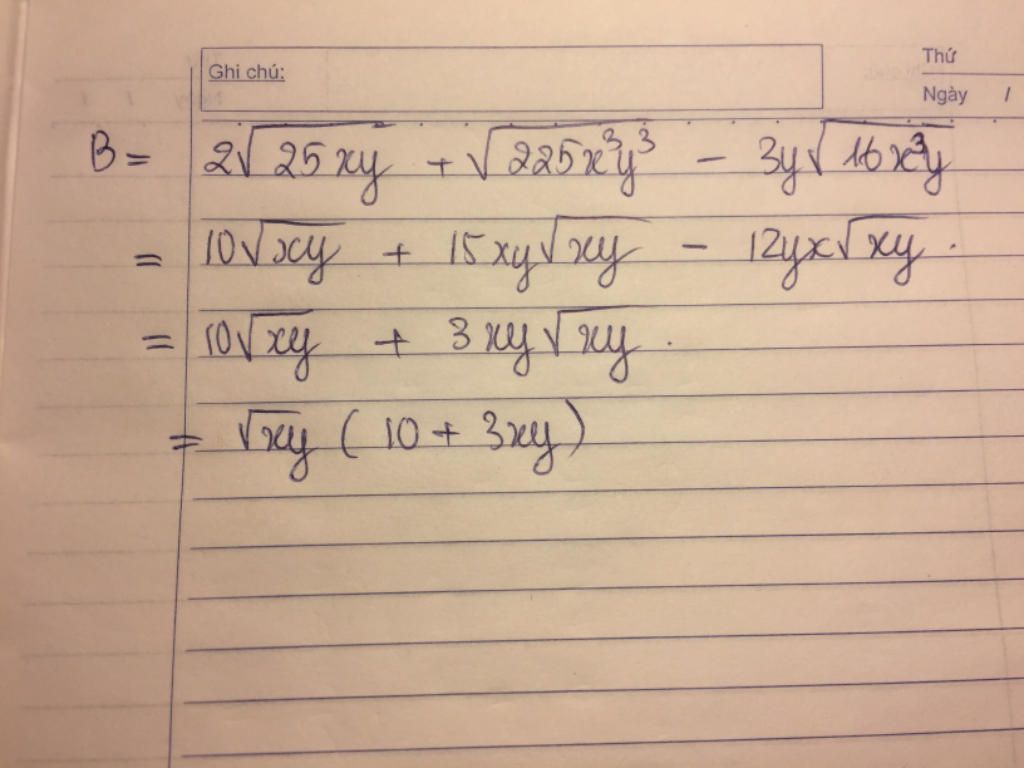 Ghi chú:
Thứ
Ngày /
B = 2√25xy + √225x³y³ - 3y√16x³y
= 10√xy + 15xy√xy - 12yx√xy .
= 10√xy + 3xy√xy .
= √xy ( 10 + 3xy )